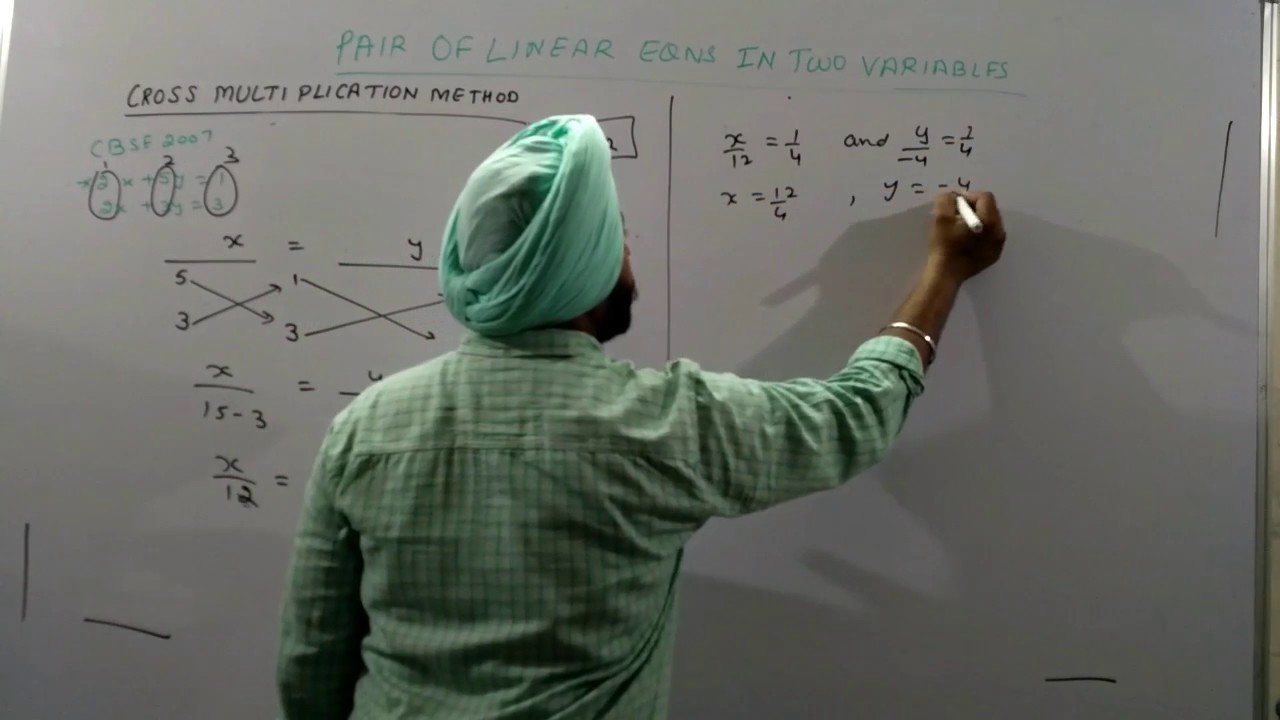 PAIR OF LINEAR EQNS IN TWO VARIABLES
CROSS MULTIPLICATION METHOD
CBSE 2007
1 2 3
2x + 5y = 1
2x + 3y = 3
x = y
5 1
3 3
x/15-3 = y
x/12 =
x/12 = 1/4 and y/-4 = 1/4
x = 12/4 , y = -4